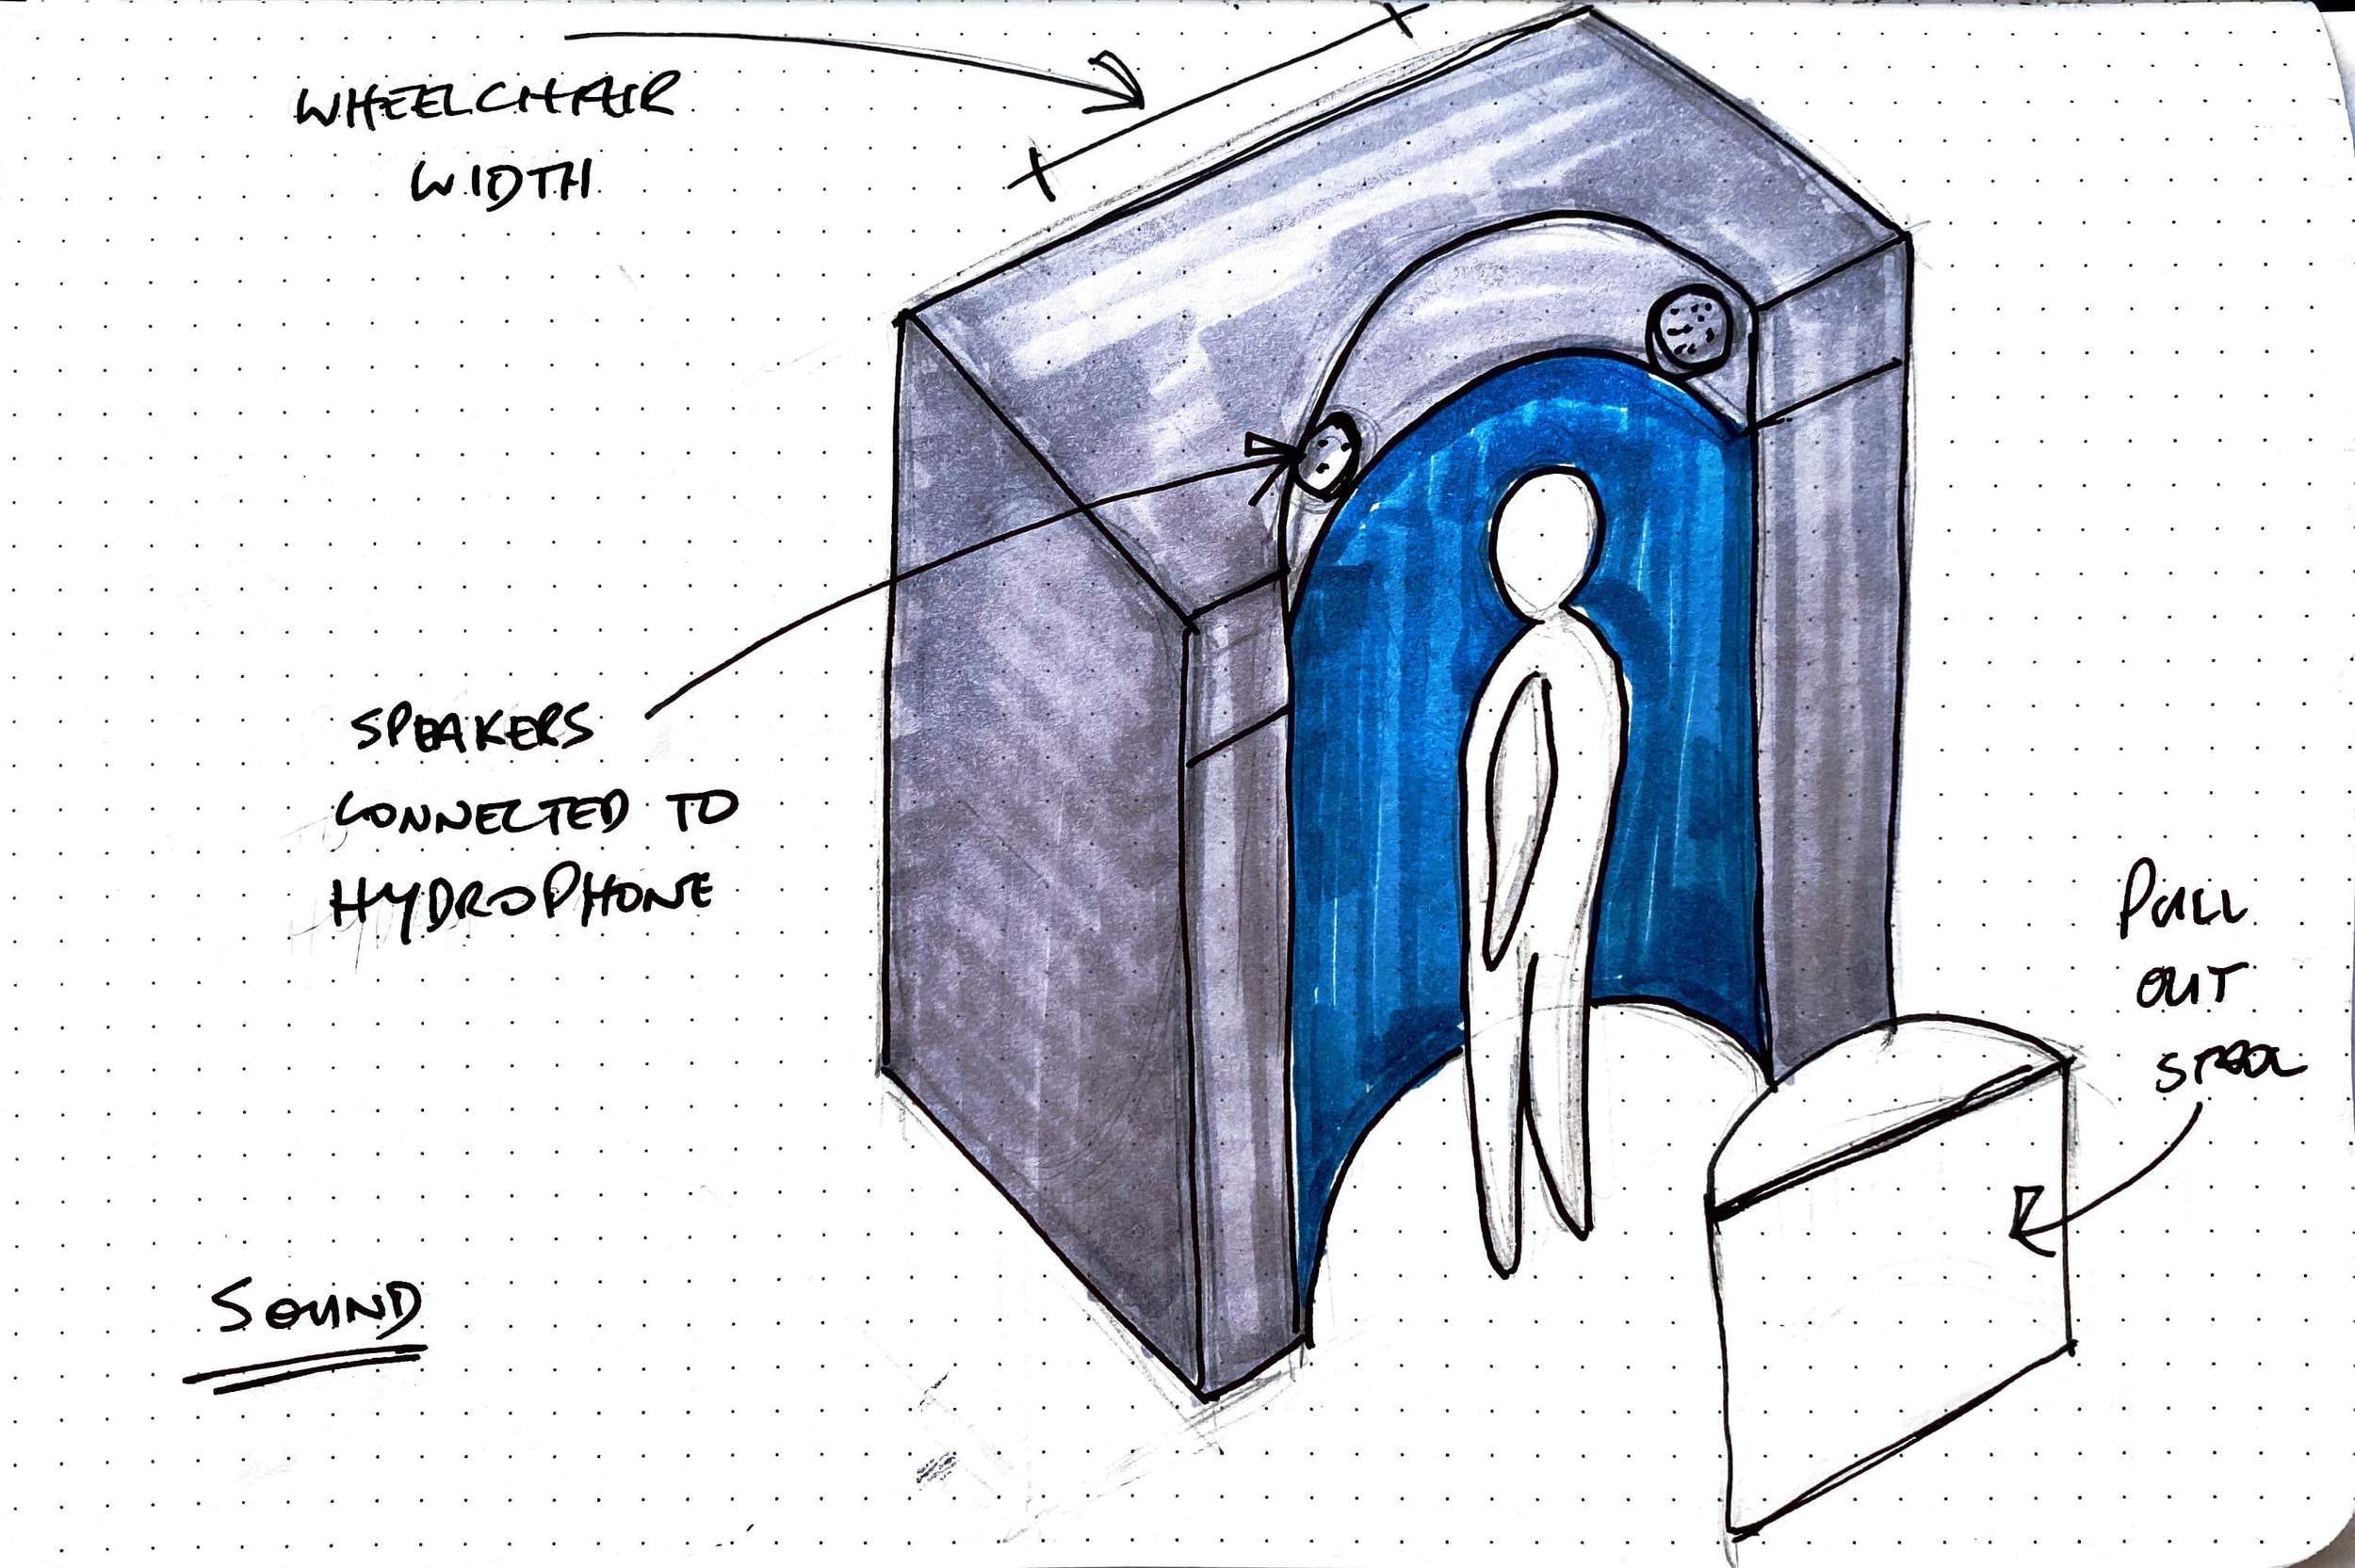 WHEELCHAIR
WIDTH
SPEAKERS
CONNECTED TO
HYDROPHONE
PULL
OUT
STOOL
SOUND